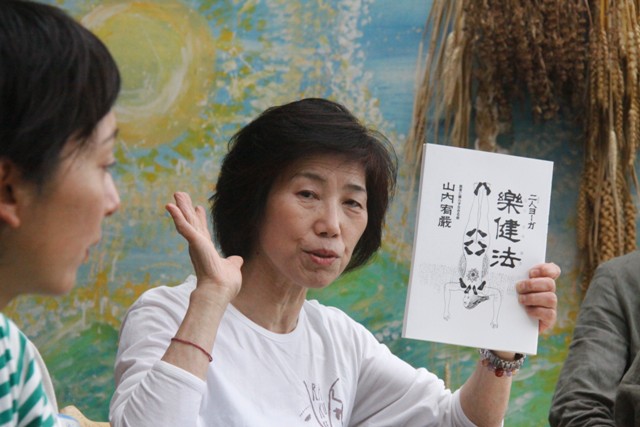 二人ヨーガ
樂健法
山内宥厳